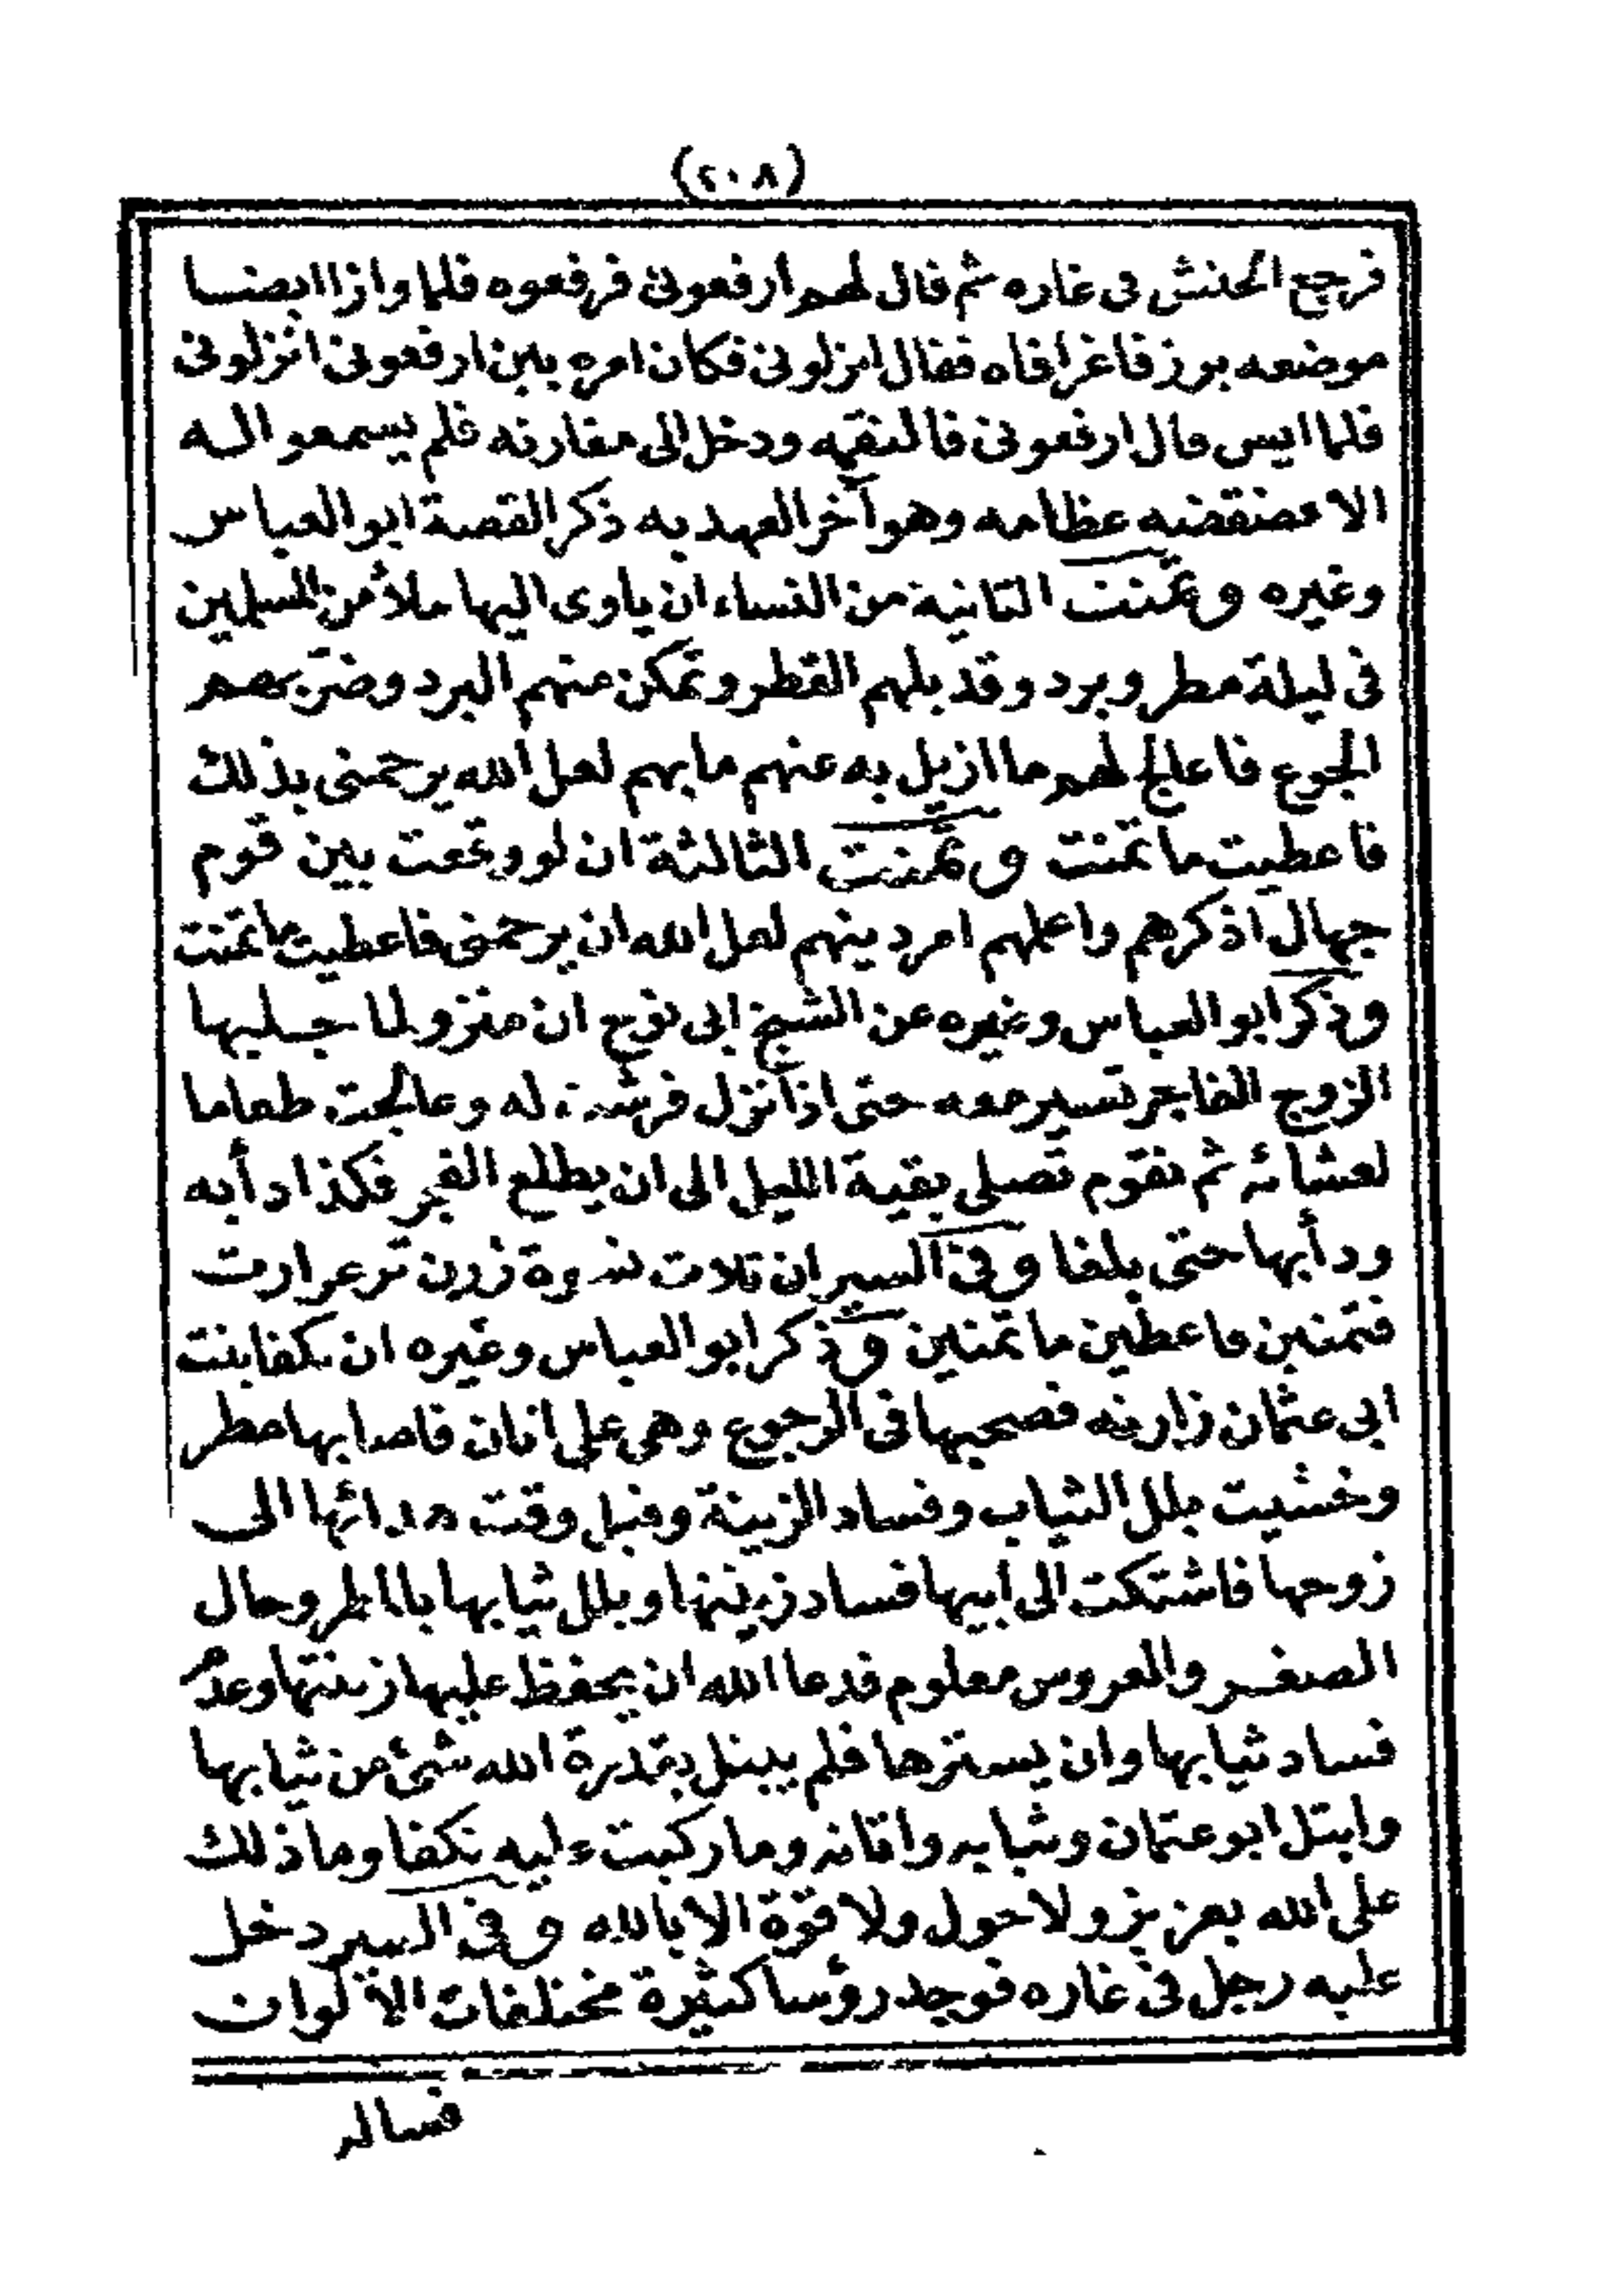 (٢٠٨)
فرجع الحنش فى غاره ثم قال لهم ارفعونى فرفعوه فلما وازا ايضسا
موضعه بورز فاغرا فاه فقال انزلونى فكان امره بين ارفعونى انزلونى
فلما ايس قال ارفعونى فالتقمه ودخل الى مغارته فلم يسمعوا له
الا قضقضة عظامه وهو آخر العهد به ذكر القصة ابو العباس
وغيره وتمنت الثانية من النساء ان ياوى اليها ملأ من المسلمين
فى ليلة مطر وبرد وقد بلهم القطر وتمكن منهم البرد وضر بهم
الجوع فاعالج لهم ما ازيل به عنهم ما بهم لعل الله يرحمنى بذلك
فاعطيت ما تمنت وتمنت الثالثة ان لو وقعت بين قوم
جهال اذكرهم واعلمهم امر دينهم لعل الله ان يرحمنى فاعطيت ما تمنت
وذكر ابو العباس وغيره عن الشيخ ابى نوح ان منزو لما جلبها
الزوج الفاجر تسير معه حتى اذا نزل فرشت له وعالجت طعاما
لعشائه ثم تقوم تصلى بقية الليل الى ان يطلع الفجر فكذا دأبه
ودأبها حتى بلغا وفى السير ان ثلاث نسوة زرن ترعرارت
فتمنين فاعطين ما تمنين وذكر ابو العباس وغيره ان تكفا بنت
ابى عثمان زارته فصحبها فى الرجوع وهى على اتان فاصابها مطر
وخشيت بلل الثياب وفساد الزينة وقبل وقت هدائها الى
زوجها فاشتكت الى ابيها فساد زينتها وبلل ثيابها بالمطر وحال
الصغر والعروس معلوم فدعا الله ان يحفظ عليها زينتها وعدم
فساد ثيابها وان يسترها فلم يبتل بقدرة الله شئ من ثيابها
وابتل ابو عثمان وثيابه واتانه وما ركبت عليه تكفا وما ذلك
على الله بعزيز ولا حول ولا قوة الا بالله وفى السير دخل
عليه رجل فى غاره فوجد رؤسا كثيرة مختلفات الالوان
فساله